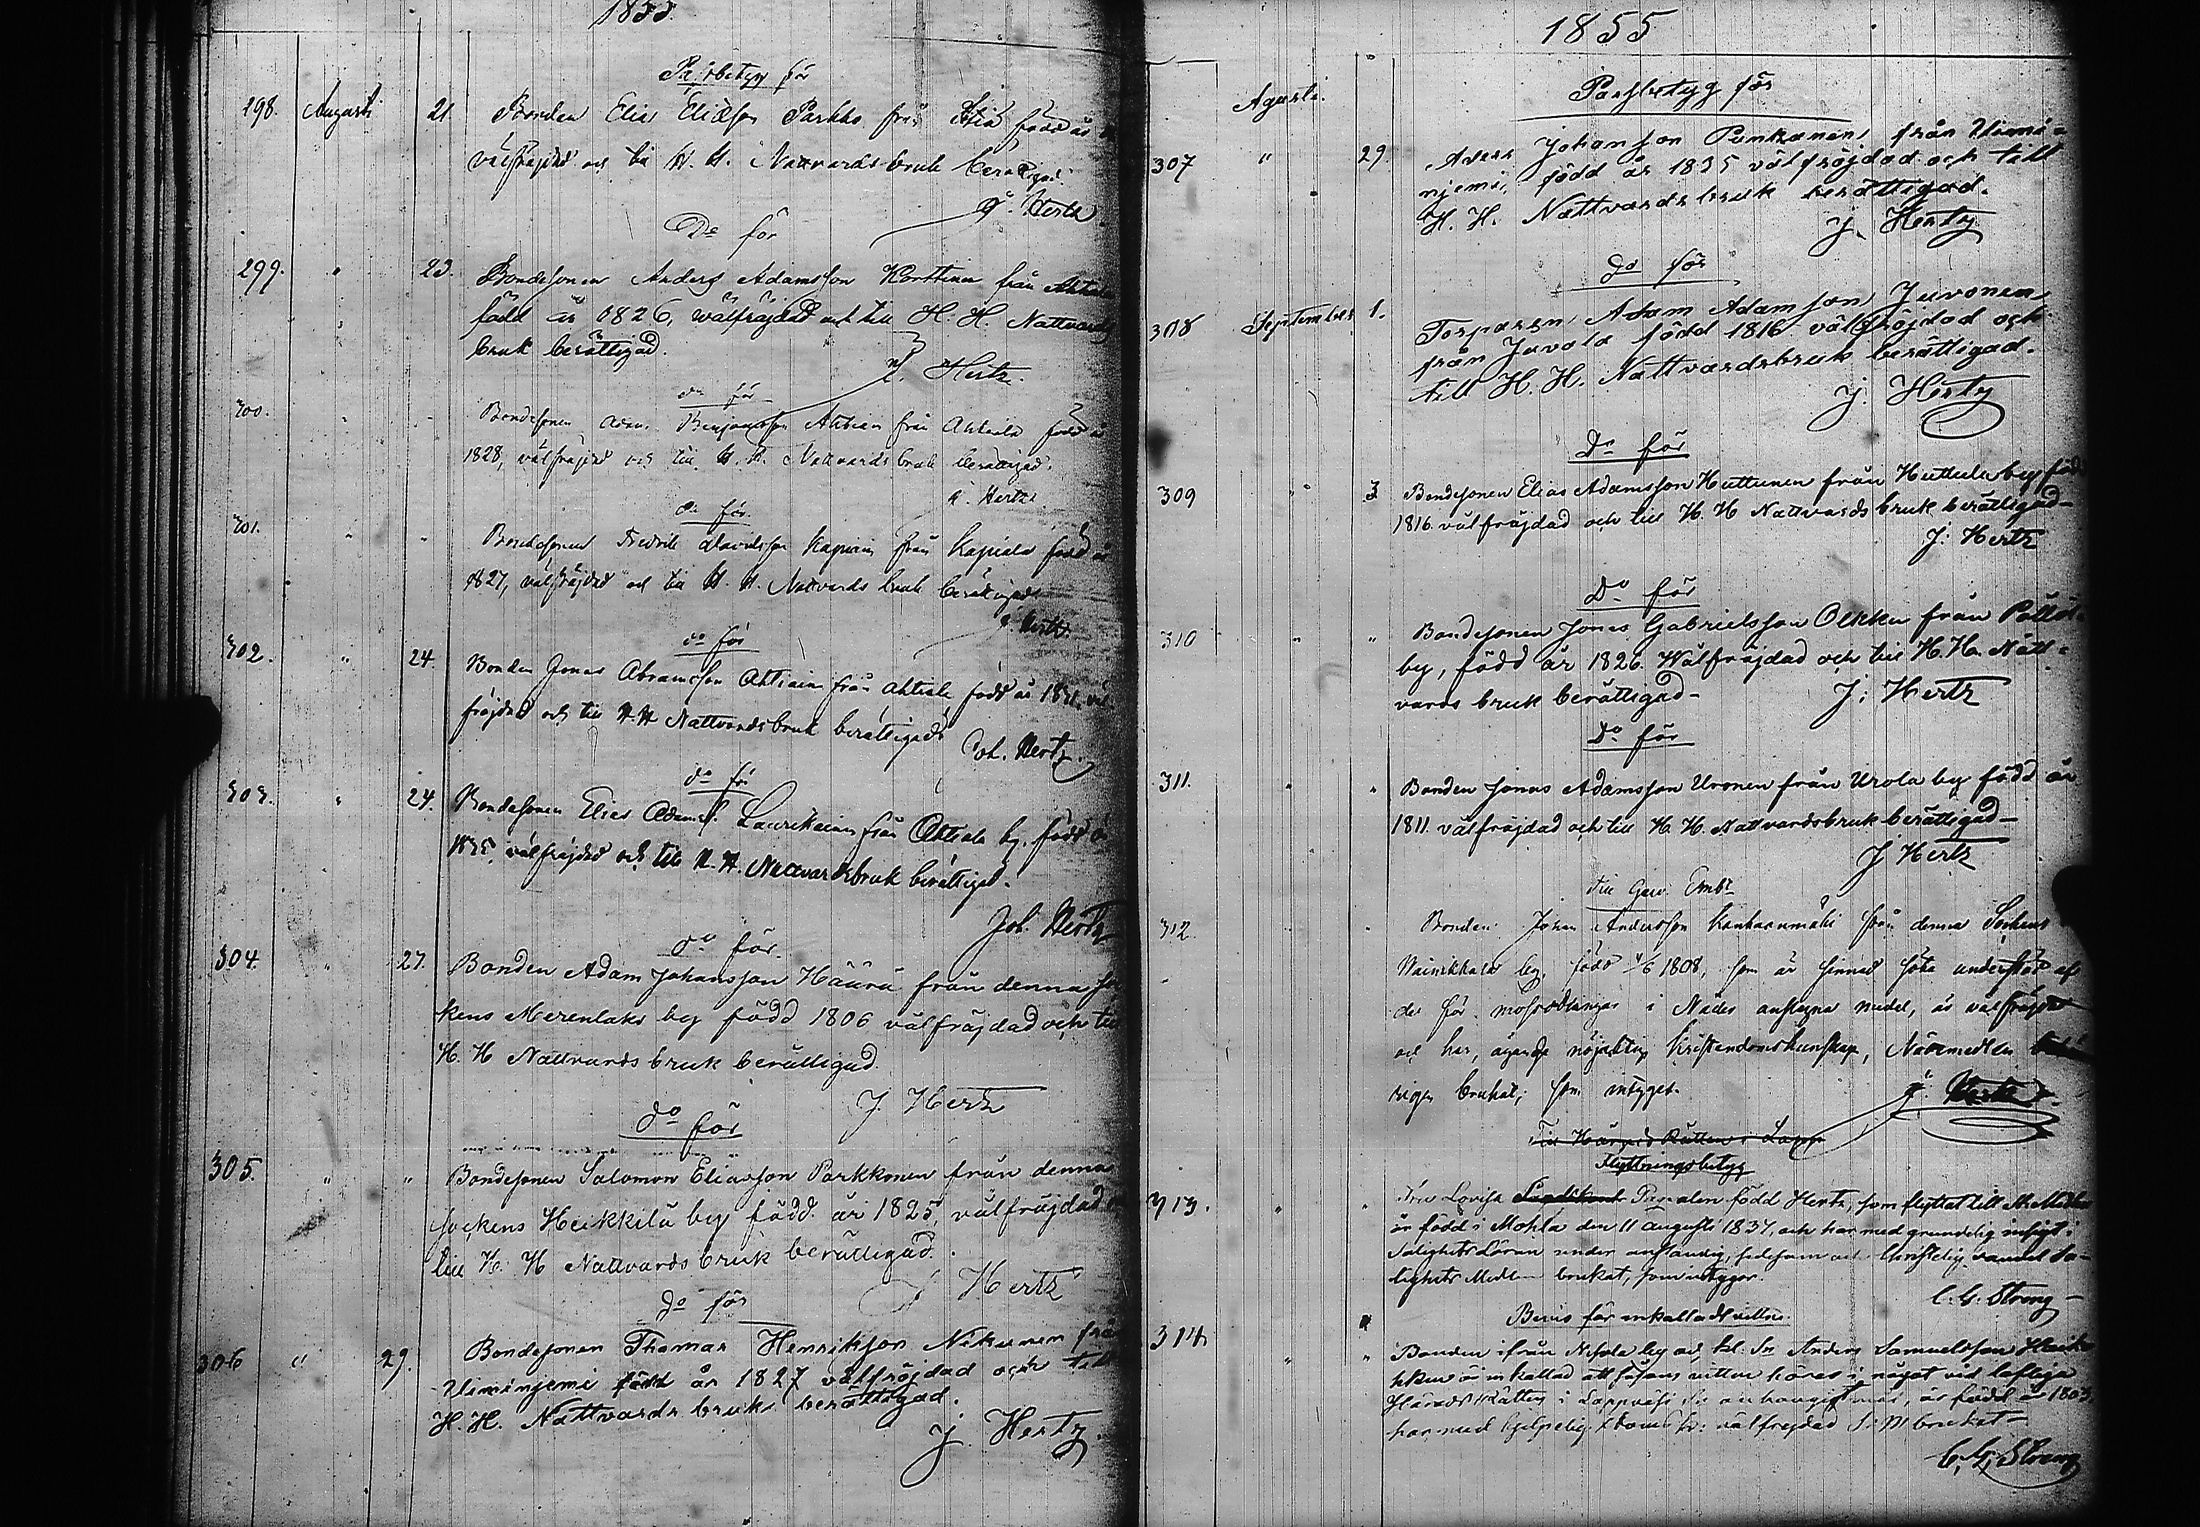 1855.
Passbetyg för
298. Augusti 21. Bonden Elias Eliasson Parkko från född år
välfräjdad och till H. H. Nattvards bruk berättigad.
J. Hertz
Do för
299. " 23. Bondesonen Anders Adamsson Korttinen från Ahtiala
född år 1826, wälfräjdad och till H. H. Nattvards
bruk berättigad.
J. Hertz.
do för
300. " " Bondesonen Adam Benjamsson Ahtiain från Ahtiala född år
1828, välfräjdad och till H. H. Nattvards bruk berättigad.
J. Hertz
do för.
301. " " Bondesonen Fredrik Davidsson Kapiain från Kapiala född år
1827, välfräjdad och till H. H. Nattvards bruk berättigad
J. Hertz.
do för
302. " 24. Bonden Jonas Abramsson Ahtiain från Ahtiala född år väl-
fräjdad och till H. H Nattvardsbruk berättigad
Joh. Hertz.
do för
303. " 24. Bondesonen Elias Adamss. Laurikain från Ahtiala by. född år
1835, välfräjdad och till H. H. Nattvardsbruk berättigad.
Joh. Hertz
do för.
304. " 27. Bonden Adam Johansson Häärä från denna so
kens Merenlaks by född 1806 välfräjdad och till
H. H Nattvards bruk berättigad.
J Hertz
do för
305. " " Bondesonen Salomon Eliasson Parkkonen från denna
sockens Heikkilä by född år 1825, välfräjdad o
till H. H Nattvards bruk berättigad.
J Hertz
do för
306 " 29. Bondesonen Thomas Henriksson Nikunen från
Uiminjemi född år 1827 välfröjdad och till
H. H. Nattvards bruks berättigad.
J. Hertz.
1855
Passbetyg för
Agusti.
307 " 29. Johansson Punkanen från Uimi-
njemi, född år 1835 välfröjdad och till
H. H. Nattvards bruk berättigad.
J. Hertz
do för
308 September 1. Torparen Adam Adamsson Juvonen
från Juvola född 1816 välfröjdad och
till H. H. Nattvardsbruk berättigad.
J. Hertz
Do för
309 " 3 Bondesonen Elias Adamsson Huttunen från Huttula by född
1816 välfräjdad och till H. H Nattvards bruk berättigad-
J: Hertz
Do för
310 " " Bondesonen Jonas Gabrielsson Olkku från
by, född år 1826. Wälfräjdad och till H. H. Natt-
vards bruk berättigad-
J: Hertz
Do för
311. " " Bonden Jonas Adamsson Uronen från Urola by född år
1811. välfräjdad och till H. H. Nattvardsbruk berättigad-
J Hertz
Till Guv. Embt
312 " Bonden Johan Andersson Kankaanmäki från denna Sockens
Wainikkala by, född 4/6 1808, som är sinnad söka understöd af
de för mossodlingar i Nåder anslagna medel, är välfräjdad
och har, ägande nöjaktig Kristendomskunskap, Nådemedlen
brukat; som intygar.
J. Hertz
Till Härads Rätten i Lapp
Flyttningsbetyg
313. " " Fru Lovisa född Hertz, som flyttat till
är född i Mohla den 11 Augusti 1837, och har med grundelig insigt i
Salighets Läran under anständig, och Christelig vandel Sa-
lighets Medlen brukat, som intygar.
C. G. Streng-
Bevis för inkalladt vittne.
314 " " Bonden ifrån by och kl. Sn Anders Samuelsson
är inkallad att såsom vittne höras i något vid lofliga
Härads Rätten i Lappvesi mål, är född år 1803,
har med välfrejdad S. M. brukat-
C. G. Streng